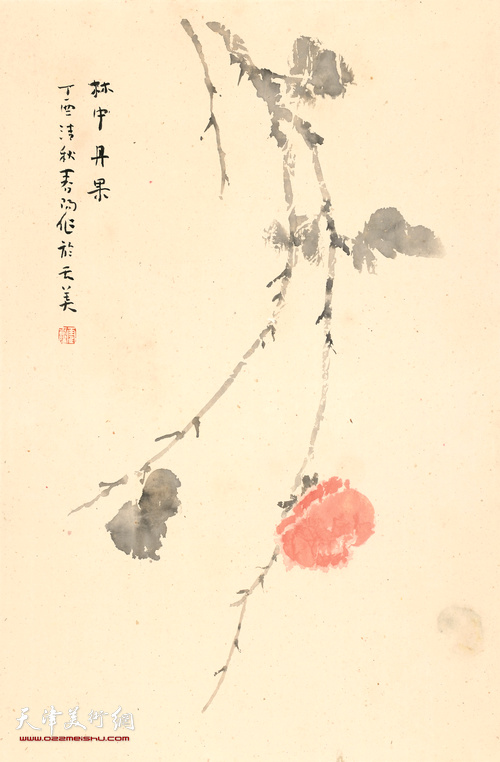 林中丹果
丁酉清秋春阳作於天美
天津美術網
www.022meishu.com